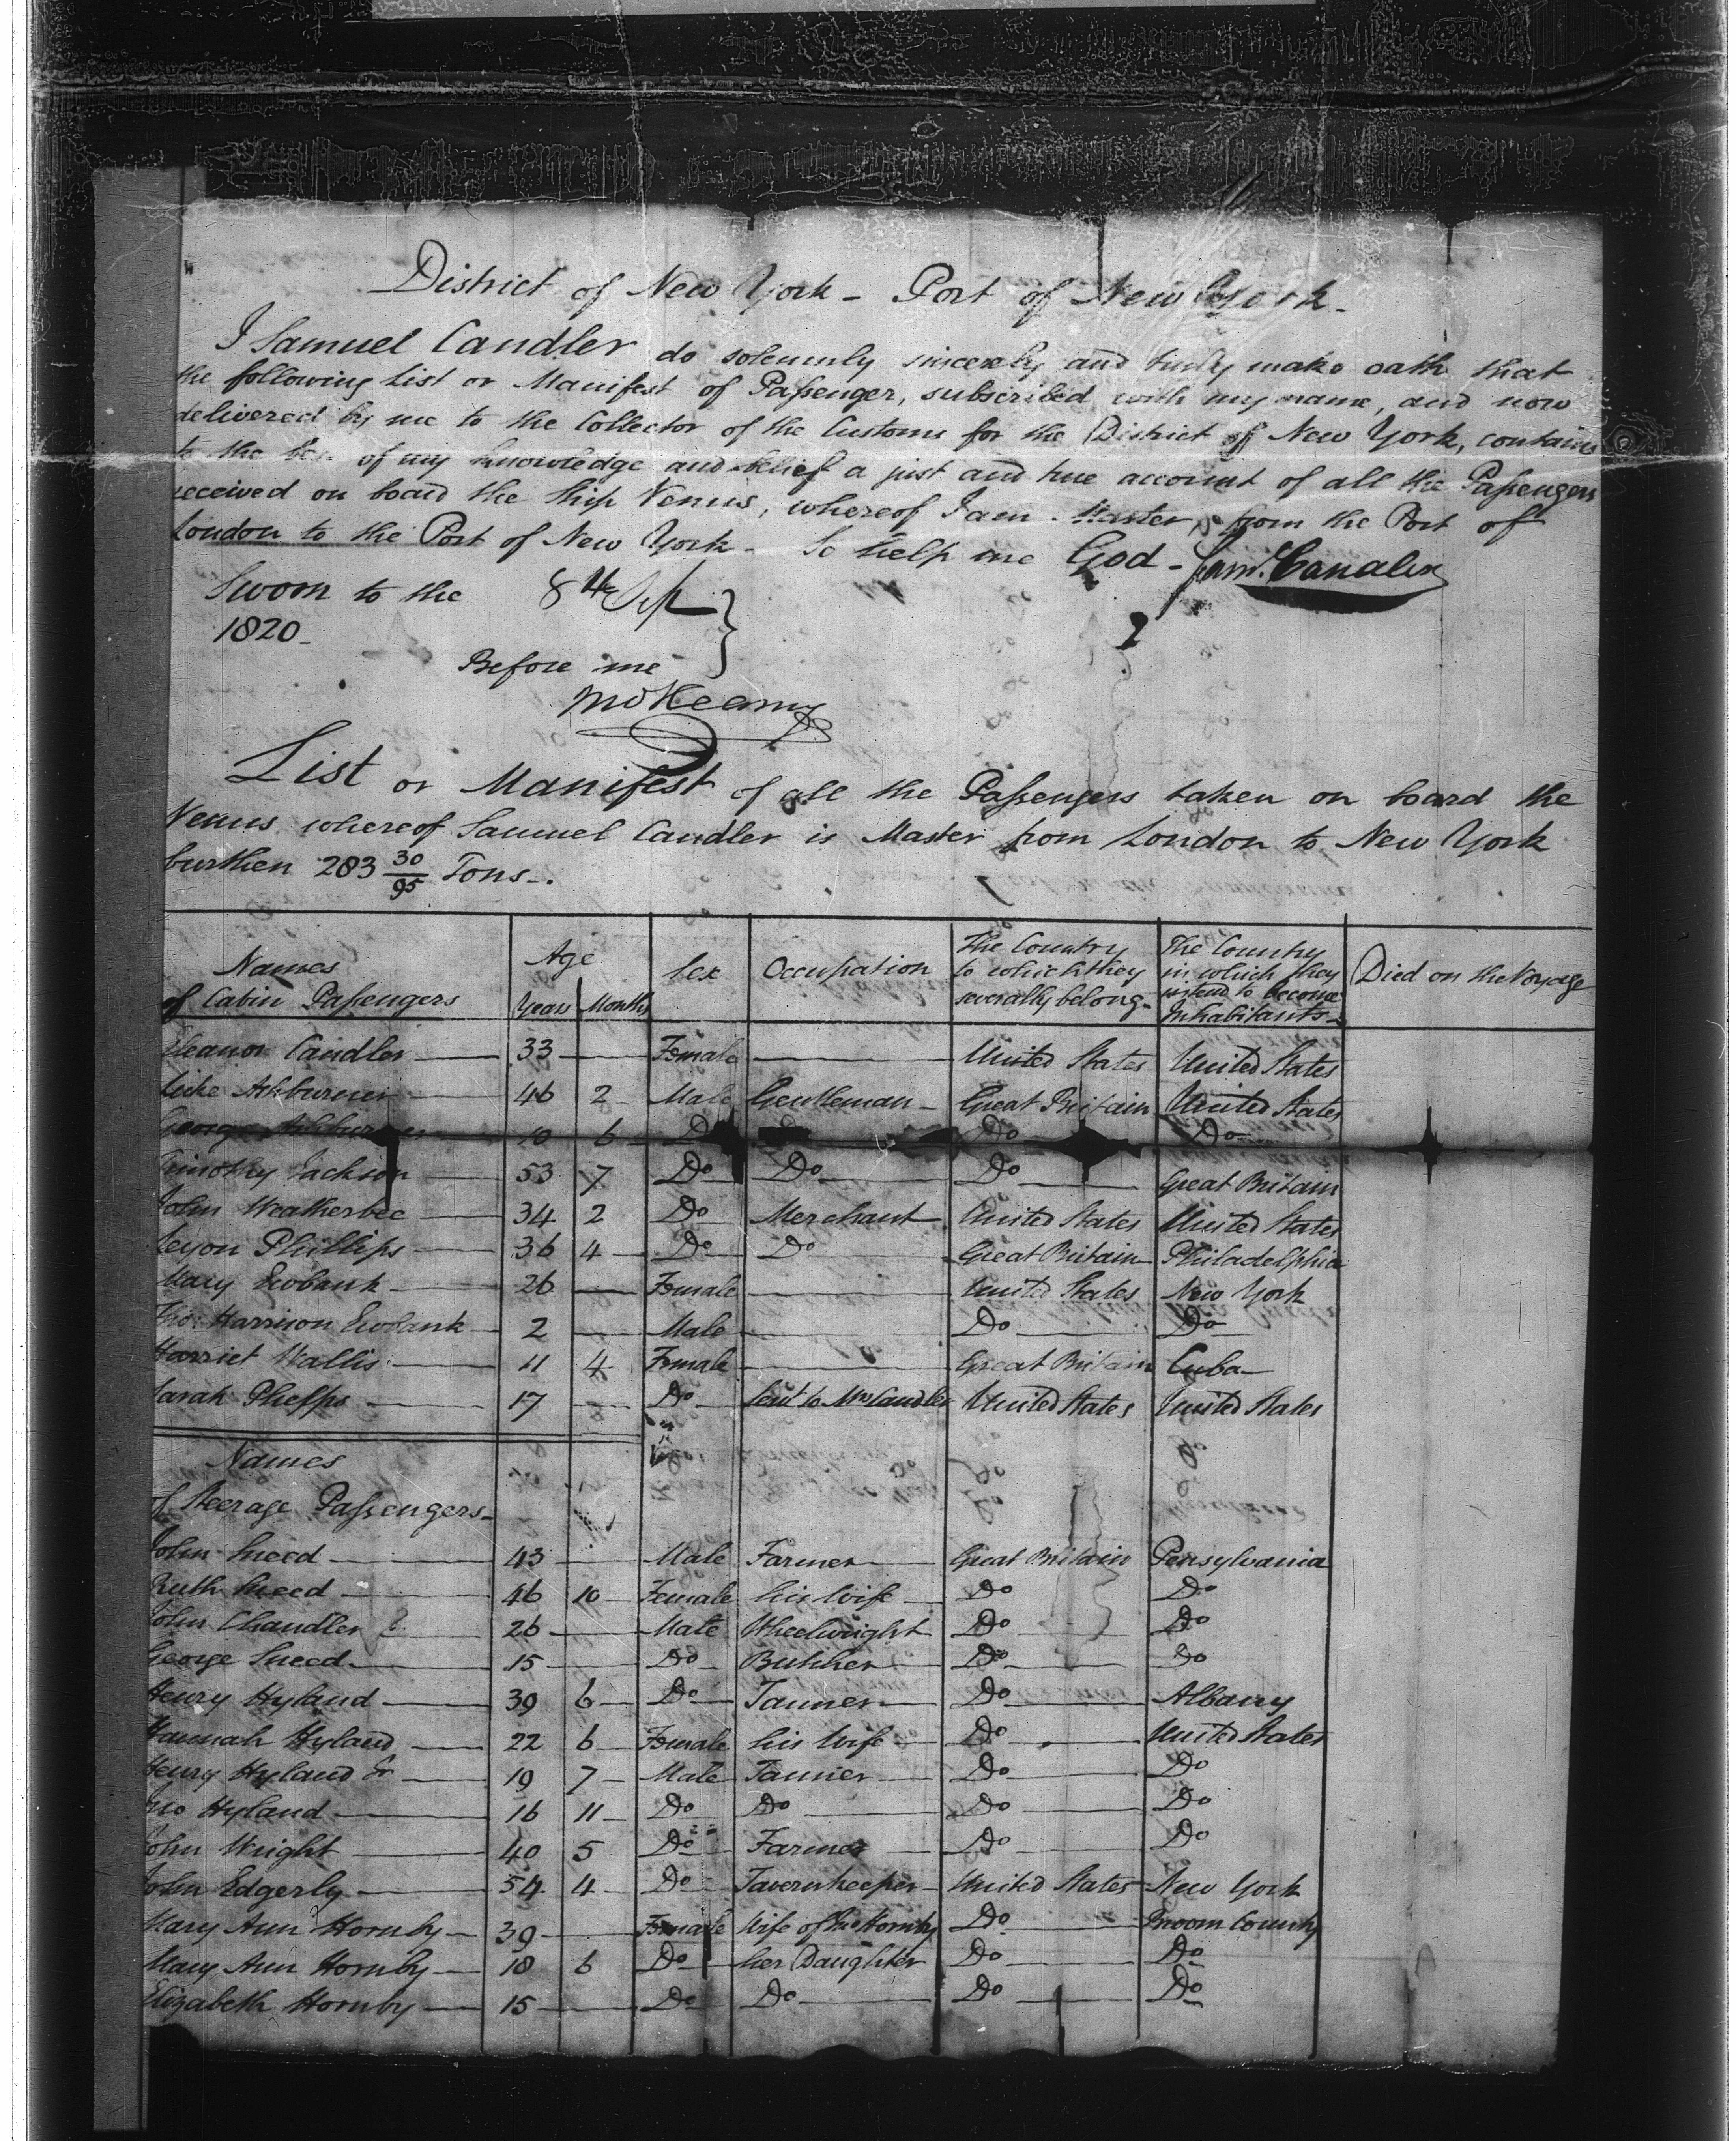 District of New York - Port of New York -
I Samuel Candler do solemnly sincerely and truly make oath that
the following List or Manifest of Passenger, subscribed with my name, and now
delivered by me to the Collector of the Customs for the District of New York, contains
to the of my knowledge and belief a just and true account of all the Passengers
received on board the Ship Venus, whereof I am Master, from the Port of
London to the Port of New York - So help me God - Saml. Candler
Sworn to the 8th Sep
1820 -
Before me
List or Manifest of all the Passengers taken on board the
Venus whereof Samuel Candler is Master from London to New York
burthen 283 30/95 Tons -.
Names of Cabin Passengers Age Years Months Sex Occupation The Country to which they severally belong - The Country in which they intend to become Inhabitants - Died on the Voyage
Eleanor Candler 33 Female United States United States
Ashburner 46 2 Male Gentleman Great Britain United States
George Ashburner 10 6 Do Do Do
Timothy Jackson 53 7 Do Do Do Great Britain
John Weatherbee 34 2 Do Merchant United States United States
Phillips 36 4 Do Do Great Britain Philadelphia
Mary Ewbank 26 Female United States New York
Harrison Ewbank 2 Male Do Do
Harriet Wallis 11 4 Female Great Britain Cuba
Sarah Phelps 17 Do Servt to Mrs Candler United States United States
Names
of Steerage Passengers -
John Sneed 43 Male Farmer Great Britain Pensylvania
Ruth Sneed 46 10 Female his Wife Do Do
John Chandler 26 Male Wheelwright Do Do
George Sneed 15 Do Butcher Do Do
Henry Hyland 39 6 Do Tanner Do Albany
Hannah Hyland 22 6 Female his Wife Do United States
Henry Hyland Jr 19 7 Male Tanner Do Do
Jno Hyland 16 11 Do Do Do Do
John Wright 40 5 Do Farmer Do Do
John Edgerly 54 4 Do Tavernkeeper United States New York
Mary Ann Hornby 39 Female Wife of Jno Hornby Do Broom County
Mary Ann Hornby 18 6 Do her Daughter Do Do
Elizabeth Hornby 15 Do Do Do Do